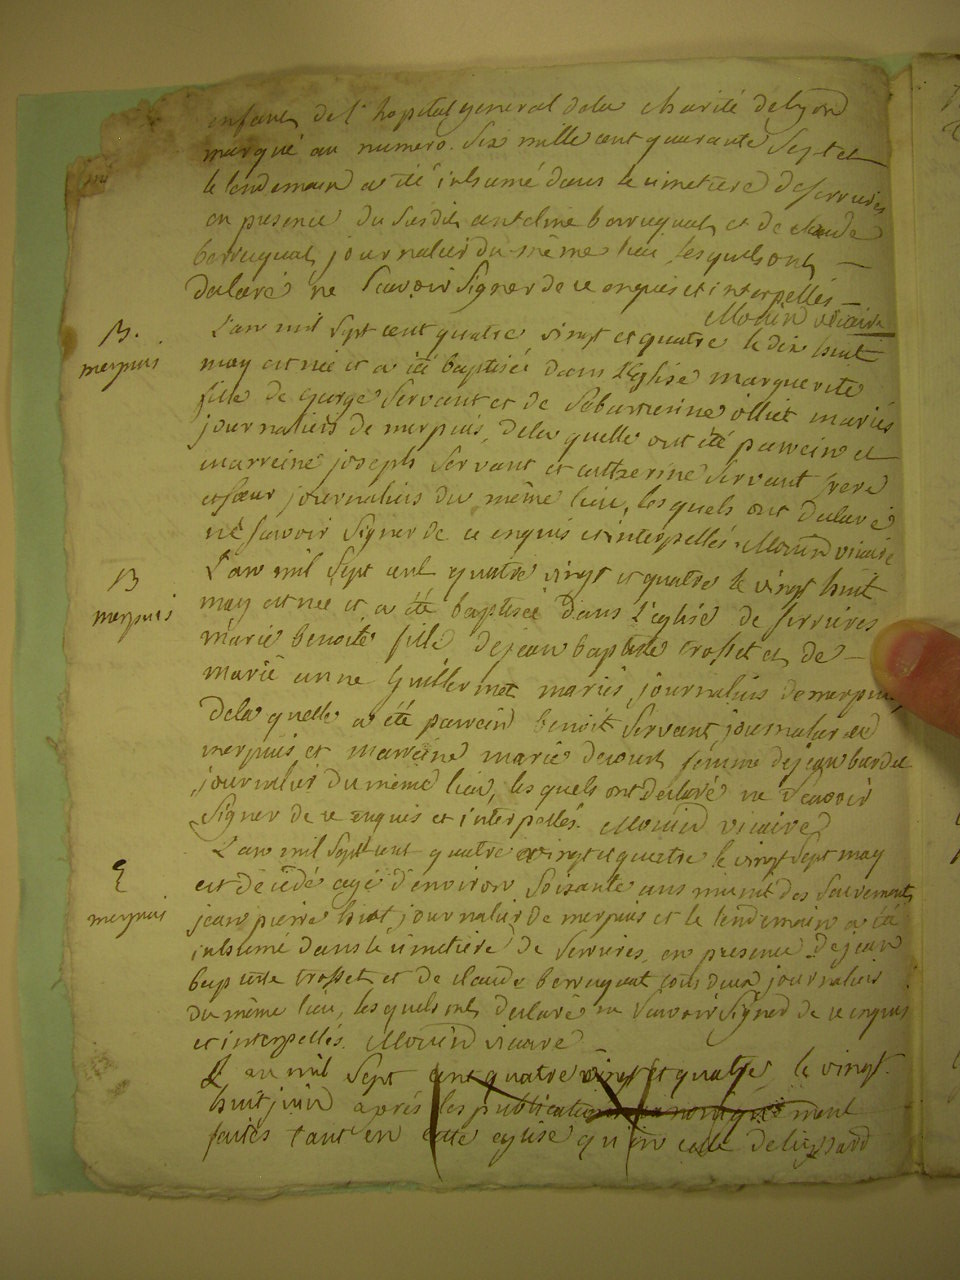 enfant de l'hopital general dela charité de lyon
marqué au numero. Six mille cent quarante Sept et
le lendemain a été inhumé dans le cimetiere de serrieres
en presence du susdit antelme berruquat et de claude
berruquat journalier du même lieu lesquels ont
declaré ne Scavoir Signer de ce enquis et interpellés
Morin vicaire
B.
merpuis
L'an mil Sept cent quatre vingt et quatre le dix huit
may est née et a été baptisée dans l'Eglise marguerite
fille de George Servant et de Sebastienne olliet mariés
journaliers de merpuis, dela quelle ont été parrein et
marreine joseph Servant et catherine Servant frere
et sœur journaliers du même lieu, les quels ont declaré
ne scavoir Signer de ce enquis et interpellés. Morin vicaire
B
merpuis
L'an mil Sept cent quatre vingt et quatre le vingt huit
may est née et a été baptisée dans l'eglise de serrieres
marie benoite fille de jean baptiste trosset et de
marie anne Guillermet mariés, journaliers de merpuis
dela quelle a été parrein benoit Servant journalier de
merpuis et marreine marie decourt femme de jean bardet
journalier du même lieu, les quels ont declaré ne scavoir
Signer de ce enquis et interpellés. Morin vicaire
E
merpuis
L'an mil Sept cent quatre vingt et quatre le vingt Sept may
est decédé agé d'environ Soixante ans munit des Sacrements
jean pierre huot journalier de merpuis et le lendemain a été
inhumé dans le cimetiere de Serrieres, en presence de jean
baptiste trosset et de claude berruquat tous deux journaliers
du même lieu, les quels ont declaré ne Scavoir Signer de ce enquis
et interpellés. Morin vicaire
L'an mil Sept cent quatre vingt et quatre, le vingt
huit juin aprés les publications canoniquement
faites tant en cette eglise qu'en celle de